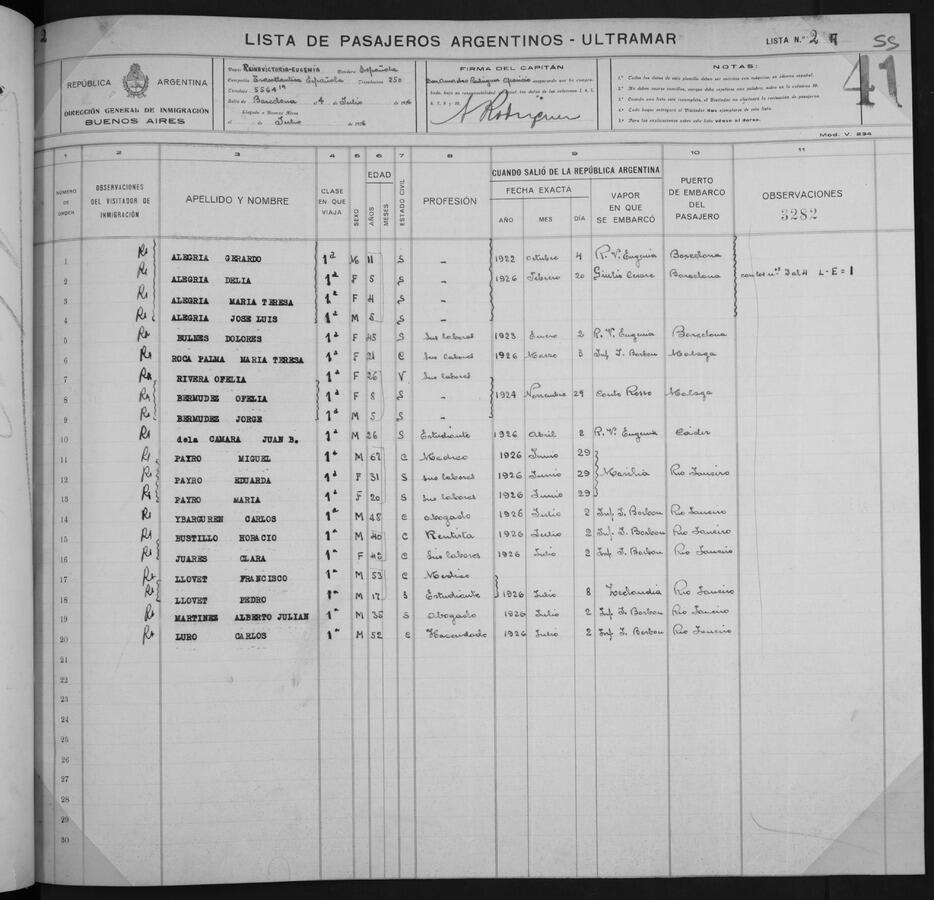 2
LISTA DE PASAJEROS ARGENTINOS - ULTRAMAR
LISTA N.º 2
SS
41
REPÚBLICA ARGENTINA
DIRECCIÓN GENERAL DE INMIGRACIÓN
BUENOS AIRES
Vapor REINAVICTORIA-EUGENIA Bandera Española
Compañía Trasatlántica Española Tripulantes 250
Tonelaje 5564
Salió de Barcelona 4 de Julio de 1926
Llegado a Buenos Aires
el de Julio de 1926
FIRMA DEL CAPITÁN
A Rodriguez
NOTAS:
Mod. V. 234
1 2 3 4 5 6 7 8 9 10 11
NÚMERO DE ORDEN
OBSERVACIONES DEL VISITADOR DE INMIGRACIÓN
APELLIDO Y NOMBRE
CLASE EN QUE VIAJA
SEXO
EDAD
AÑOS
MESES
ESTADO CIVIL
PROFESIÓN
CUANDO SALIÓ DE LA REPÚBLICA ARGENTINA
FECHA EXACTA
AÑO MES DÍA
VAPOR EN QUE SE EMBARCÓ
PUERTO DE EMBARCO DEL PASAJERO
OBSERVACIONES
3282
1 Re ALEGRIA GERARDO 1ª M 11 S - 1922 Octubre 4 R. V. Eugenia Barcelona
2 Re ALEGRIA DELIA 1ª F 5 S - 1926 Febrero 20 Giulio Cesare Barcelona con los nº 3 al 4 L-E=1
3 Re ALEGRIA MARIA TERESA 1ª F 4 S
4 Re ALEGRIA JOSE LUIS 1ª M 8 S
5 Re BULNES DOLORES 1ª F 45 S Sus labores 1923 Enero 2 R. V. Eugenia Barcelona
6 Re ROCA PALMA MARIA TERESA 1ª F 21 C Sus labores 1926 Marzo 3 Inf I. Borbon Malaga
7 Re RIVERA OFELIA 1ª F 26 V Sus labores
8 Re BERMUDEZ OFELIA 1ª F 8 S - 1924 Noviembre 29 Conte Rosso Malaga
9 Re BERMUDEZ JORGE 1ª M 5 S -
10 Re dela CAMARA JUAN B. 1ª M 26 S Estudiante 1926 Abril 2 R. V. Eugenia Cádiz
11 Re PAYRO MIGUEL 1ª M 67 C Medico 1926 Junio 29
12 Re PAYRO EDUARDA 1ª F 31 S Sus labores 1926 Junio 29 Massilia Rio Janeiro
13 Re PAYRO MARIA 1ª F 20 S Sus labores 1926 Junio 29
14 Re YBARGUREN CARLOS 1ª M 48 C Abogado 1926 Julio 2 Inf I. Borbon Rio Janeiro
15 Re BUSTILLO HORACIO 1ª M 40 C Rentista 1926 Julio 2 Inf I. Borbon Rio Janeiro
16 Re JUARES CLARA 1ª F 42 C Sus labores 1926 Julio 2 Inf I. Borbon Rio Janeiro
17 Re LLOVET FRANCISCO 1ª M 53 C Medico
18 Re LLOVET PEDRO 1ª M 17 S Estudiante 1926 Julio 8 Zeelandia Rio Janeiro
19 Re MARTINEZ ALBERTO JULIAN 1ª M 35 S Abogado 1926 Julio 2 Inf I. Borbon Rio Janeiro
20 Re LURO CARLOS 1ª M 52 C Hacendado 1926 Julio 2 Inf I. Borbon Rio Janeiro
21
22
23
24
25
26
27
28
29
30